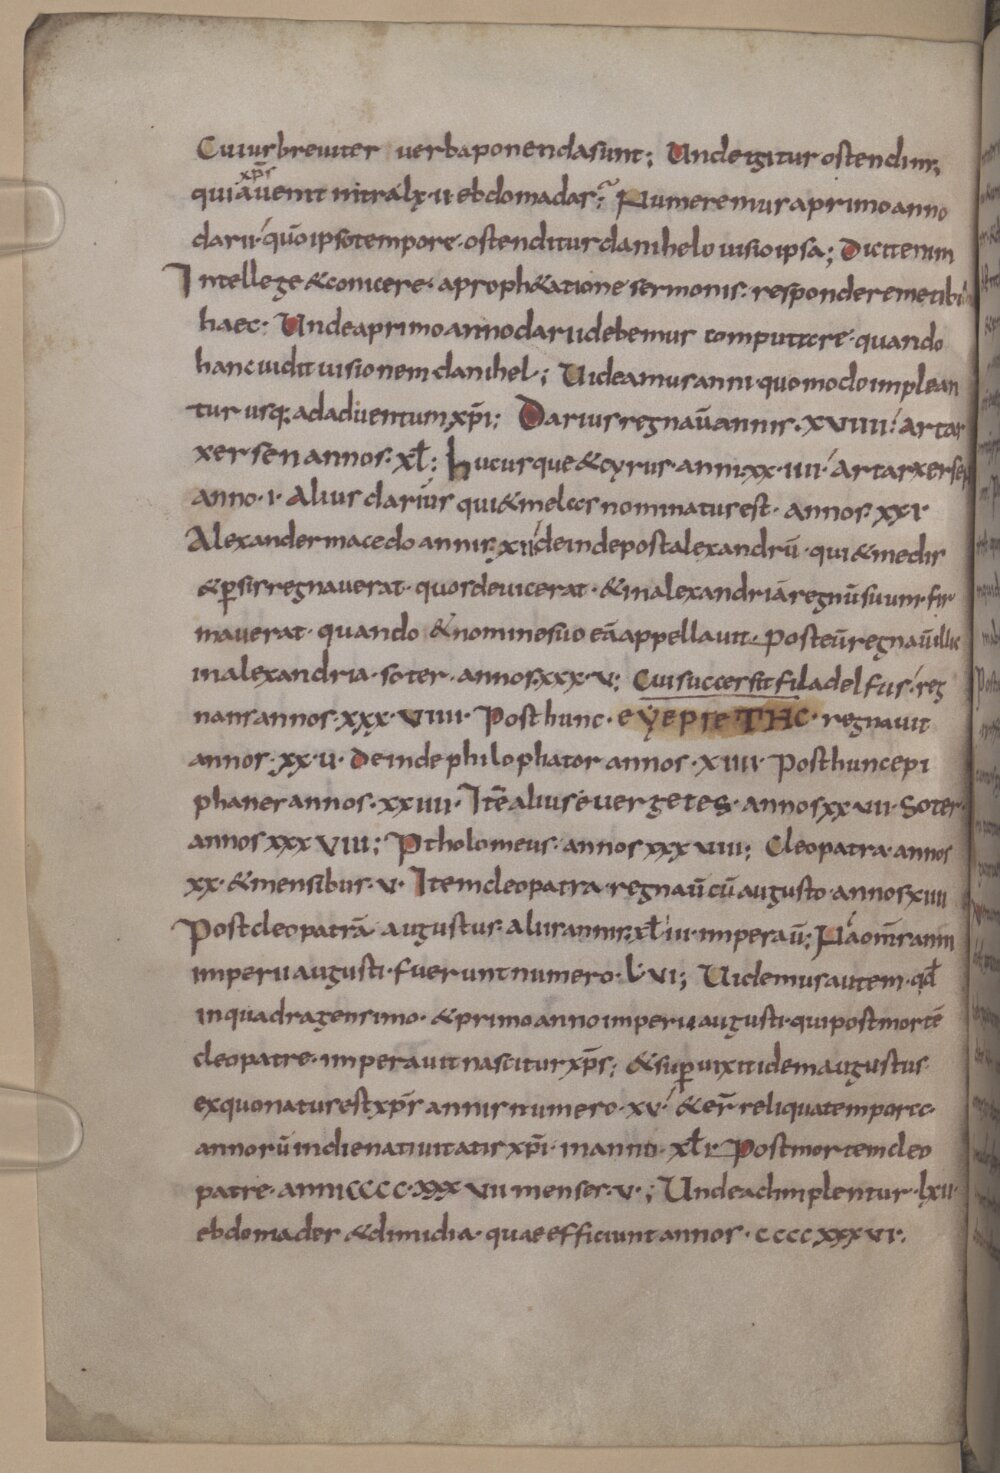 Cuius breuiter uerba ponenda sunt; Unde igitur ostendim;
quia xp̄s aduenit intra lx·ii ebdomadas; Numeremus a primo anno
darii· quō ipso tempore· ostenditur danihelo uisio ipsa; Dicit enim
Intellege & conicere· a proph&atione sermonis· respondere me tibi
haec: Unde a primo anno darii debemus computare· quando
hanc uidit uisionem danihel·; Uideamus anni· quomodo implean
tur usq; ad aduentum xp̄i; Darius regnau̅ annis· XVIIII· Artar
xersen annos· xl̄; hucusque & cyrus· anni xx·iiii· Artarxerses
anno·i· Alius darius qui & melas nominatus est· annos xxi·
Alexander macedo annis xii deinde post alexandrū· qui & medis
& p̄sis regnauerat· quos deuicerat· & in alexandriā regnū suum· fir
mauerat· quando & nomine suo eā appellauit· Post eū regnau̅ illic
in alexandria· soter· annos xxx·v: Cui succersit filadelfus· reg
nans annos· xxx·VIIII· Post hunc· eyepreTHC· regnauit
annos· xx·u· Deinde philophator annos· XIIII· Post hunc epi
phaner annos· xxiiii· Itē alius euergetes· annos xx·uii· Soter·
annos xxx VIII; Ptholomeus· annos xxx uiii; Cleopatra· annos
xx· & mensibus· v· Item cleopatra· regnau̅ cū augusto· annos xiiii
Post cleopatrā augustus· alius annis xl̄ iii· imperau̅; Nā om̄s anni
imperii augusti· fuerunt numero· lvi; Uidemus autem· qd̄
in quadragensimo· & primo anno imperii augusti· qui post mortē
cleopatre· imperauit nascitur xp̄s; & sup̄uixit idem augustus
ex quo natus est xp̄s annis numero· xv· & er̄ reliqua tempora
annorū in die natiuitatis xp̄i· in anno· xl̄i· Post mortem cleo
patre· anni CCCC·xxx uii menses·v·; Unde adimplentur· lxii·
ebdomades & dimidia· quae efficiunt annos· cccc xxx vi·